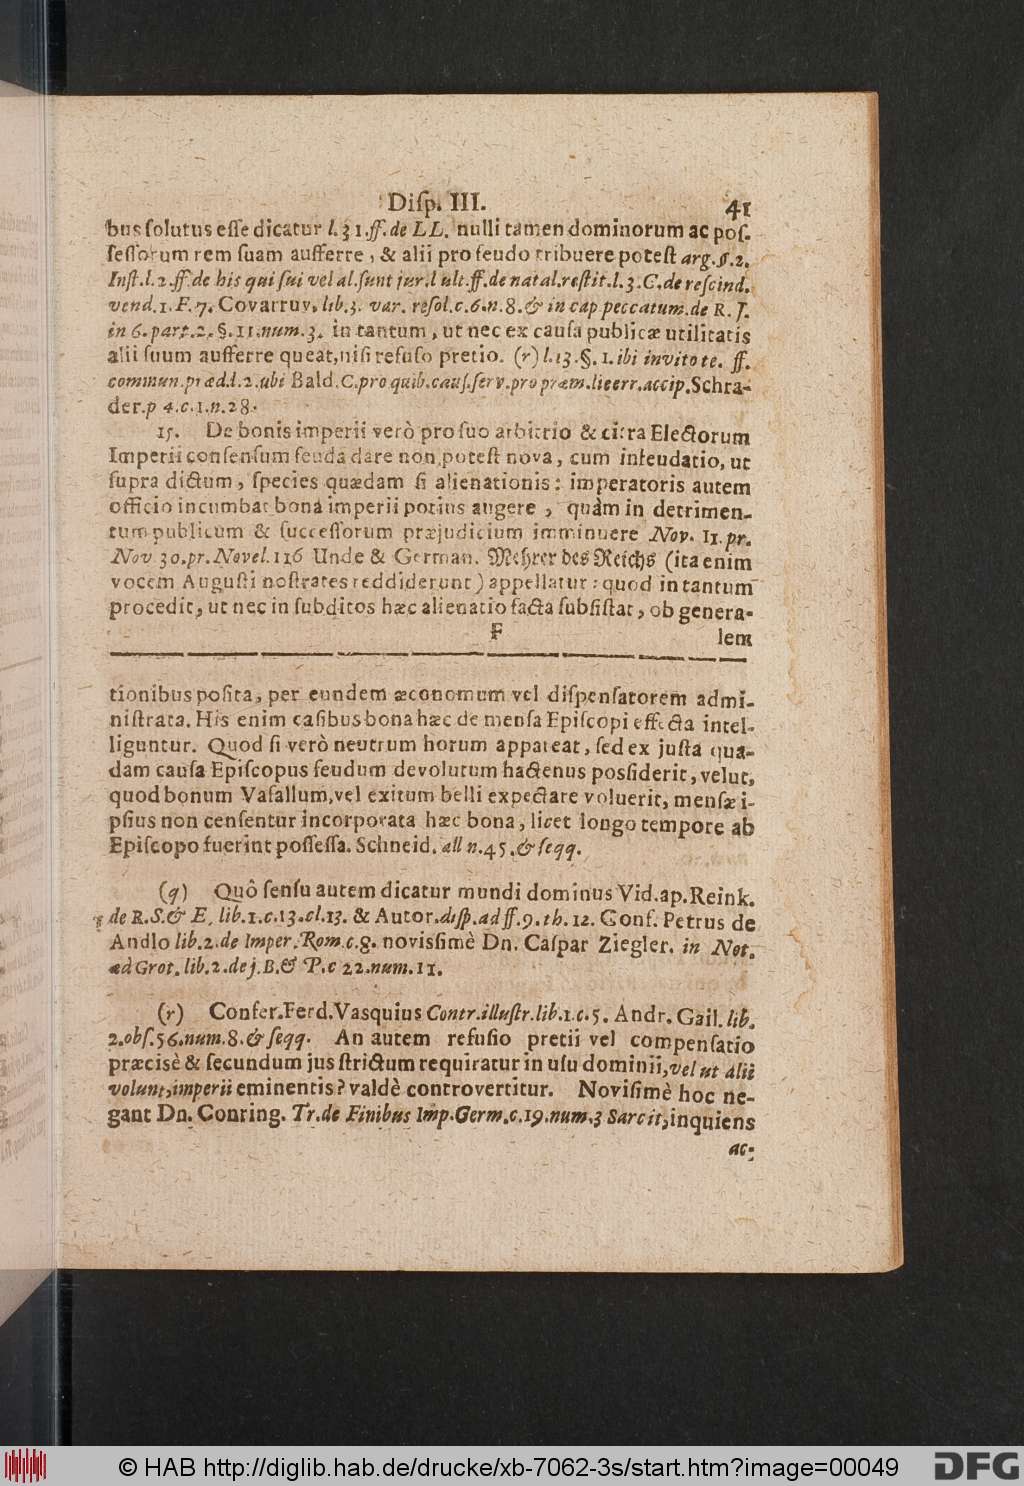 Diſp. III. 41
bus ſolutus eſſe dicatur l. 31. ff. de LL. nulli tamen dominorum ac poſ-
ſeſſorum rem ſuam aufferre, & alii pro feudo tribuere poteſt arg. §. 2.
Inſt. l. 2. ff. de his qui ſui vel al. ſunt jur. l ult. ff. de natal. reſtit. l. 3. C. de reſcind.
vend. 1. F. 7. Covarruv. lib. 3. var. reſol. c. 6. n. 8. & in cap peccatum. de R. J.
in 6. part. 2. §. 11. num. 3. in tantum, ut nec ex cauſa publicæ utilitatis
alii ſuum aufferre queat, niſi refuſo pretio. (r) l. 13. §. 1. ibi invito te. ff.
commun. præd. l. 2. ubi Bald. C. pro quib. cauſ. ſerv. pro præm. lieerr. accip. Schra-
der. p 4. c. 1. n. 28.
15. De bonis imperii verò pro ſuo arbitrio & citra Electorum
Imperii conſenſum feuda dare non poteſt nova, cum infeudatio, ut
ſupra dictum, ſpecies quædam ſi alienationis: imperatoris autem
officio incumbat bona imperii potius augere, quàm in detrimen-
tum publicum & ſucceſſorum præjudicium imminuere Nov. 11. pr.
Nov 30. pr. Novel. 116 Unde & German. Mehrer des Reichs (ita enim
vocem Auguſti noſtrates reddiderunt) appellatur: quod in tantum
procedit, ut nec in ſubditos hæc alienatio facta ſubſiſtat, ob genera-
F lem
tionibus poſita, per eundem æconomum vel diſpenſatorem admi-
niſtrata. His enim caſibus bona hæc de menſa Epiſcopi effecta intel-
liguntur. Quod ſi verò neutrum horum appareat, ſed ex juſta qua-
dam cauſa Epiſcopus feudum devolutum hactenus posſiderit, velut,
quod bonum Vaſallum, vel exitum belli expectare voluerit, menſæ i-
pſius non cenſentur incorporata hæc bona, licet longo tempore ab
Epiſcopo fuerint poſſeſſa. Schneid. all n. 45. & ſeqq.
(q) Quô ſenſu autem dicatur mundi dominus Vid. ap. Reink.
de R. S. & E. lib. 1. c. 13. cl. 13. & Autor. diſp. ad ff. 9. th. 12. Conf. Petrus de
Andlo lib. 2. de Imper. Rom. c. 8. novisſimè Dn. Caſpar Ziegler. in Not.
ad Grot. lib. 2. de j. B. & P. c 22. num. 11.
(r) Confer. Ferd. Vasquius Contr. illuſtr. lib. 1. c. 5. Andr. Gail. lib.
2. obſ. 56. num. 8. & ſeqq. An autem refuſio pretii vel compenſatio
præcisè & ſecundum jus ſtrictum requiratur in uſu dominii, vel ut alii
volunt, imperii eminentis? valdè controvertitur. Noviſimè hoc ne-
gant Dn. Conring. Tr. de Finibus Imp. Germ. c. 19. num. 3 Sarcit, inquiens
ac-
© HAB http://diglib.hab.de/drucke/xb-7062-3s/start.htm?image=00049
DFG